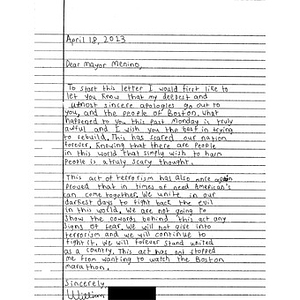 April 18, 2013
Dear Mayor Menino,
To start this letter I would first like to
let you know that my deepest and
utmost sincere apologies go out to
you, and the people of Boston. What
happened to you this past Monday is truly
awful and I wish you the best in trying
to rebuild. This has scared our nation
forever. Knowing that there are people
in this world that simply wish to harm
people is a truly scary thought.
This act of terrorism has also once again
proved that in times of need American's
can come together. We unite in our
darkest days to fight back the evil
in this world. We are not going to
show the cowards behind this act any
signs of fear. We will not give into
terrorism and we will continue to
fight it. We will forever stand united
as a country. This act has not stopped
me from wanting to watch the Boston
marathon.
Sincerely,
William